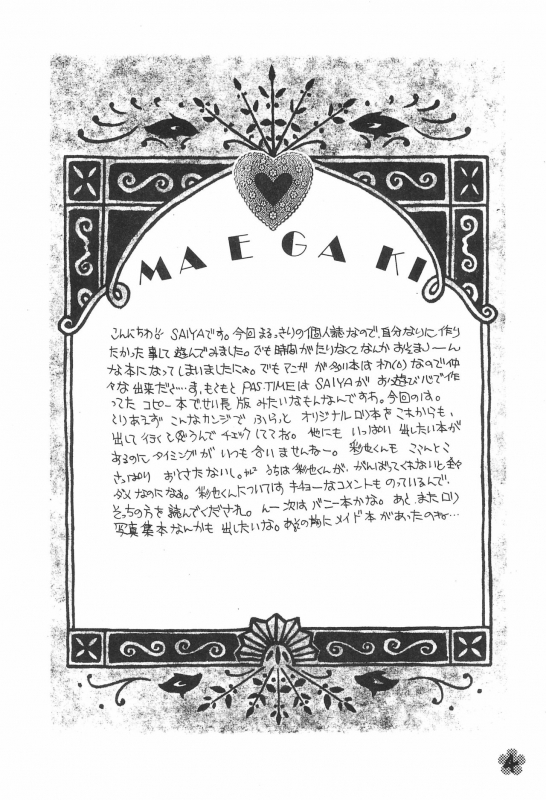 MAEGAKI
こんにちわ SAIYAです。今回まるっきりの個人誌なので、自分なりに作り
たかった事して遊んでみました。でも時間がたりなくてなんか おそまつーん
な本になってしまいましたにょ。でも マンガ が多い本は なので仲
々な出来だと…す。もともと PAS・TIMEは SAIYAが お遊び心で作
ってた コピー本で せい長版 みたいなもんなんですわ。今回のは。
とりあえず こんなカンジで ふらっと オリジナルロリ本を これからも、
出して行くと思うんで チェックしててね。 他にも いっぱい 出したい本が
あるのに タイミングが いつも合いませんねー。 彩也くんも ここんとこ
さっぱり おとさたないし。 うちは彩也くんが、がんばってくれないと
ダメなのになぁ。彩也くんについては キチョーなコメントも のっているんで、
そっちの方を読んでくだされ。んー次は バニー本かな。あと、また ロリ
写真集本なんかも 出したいな。あ その前に メイド本 があったのね…
4